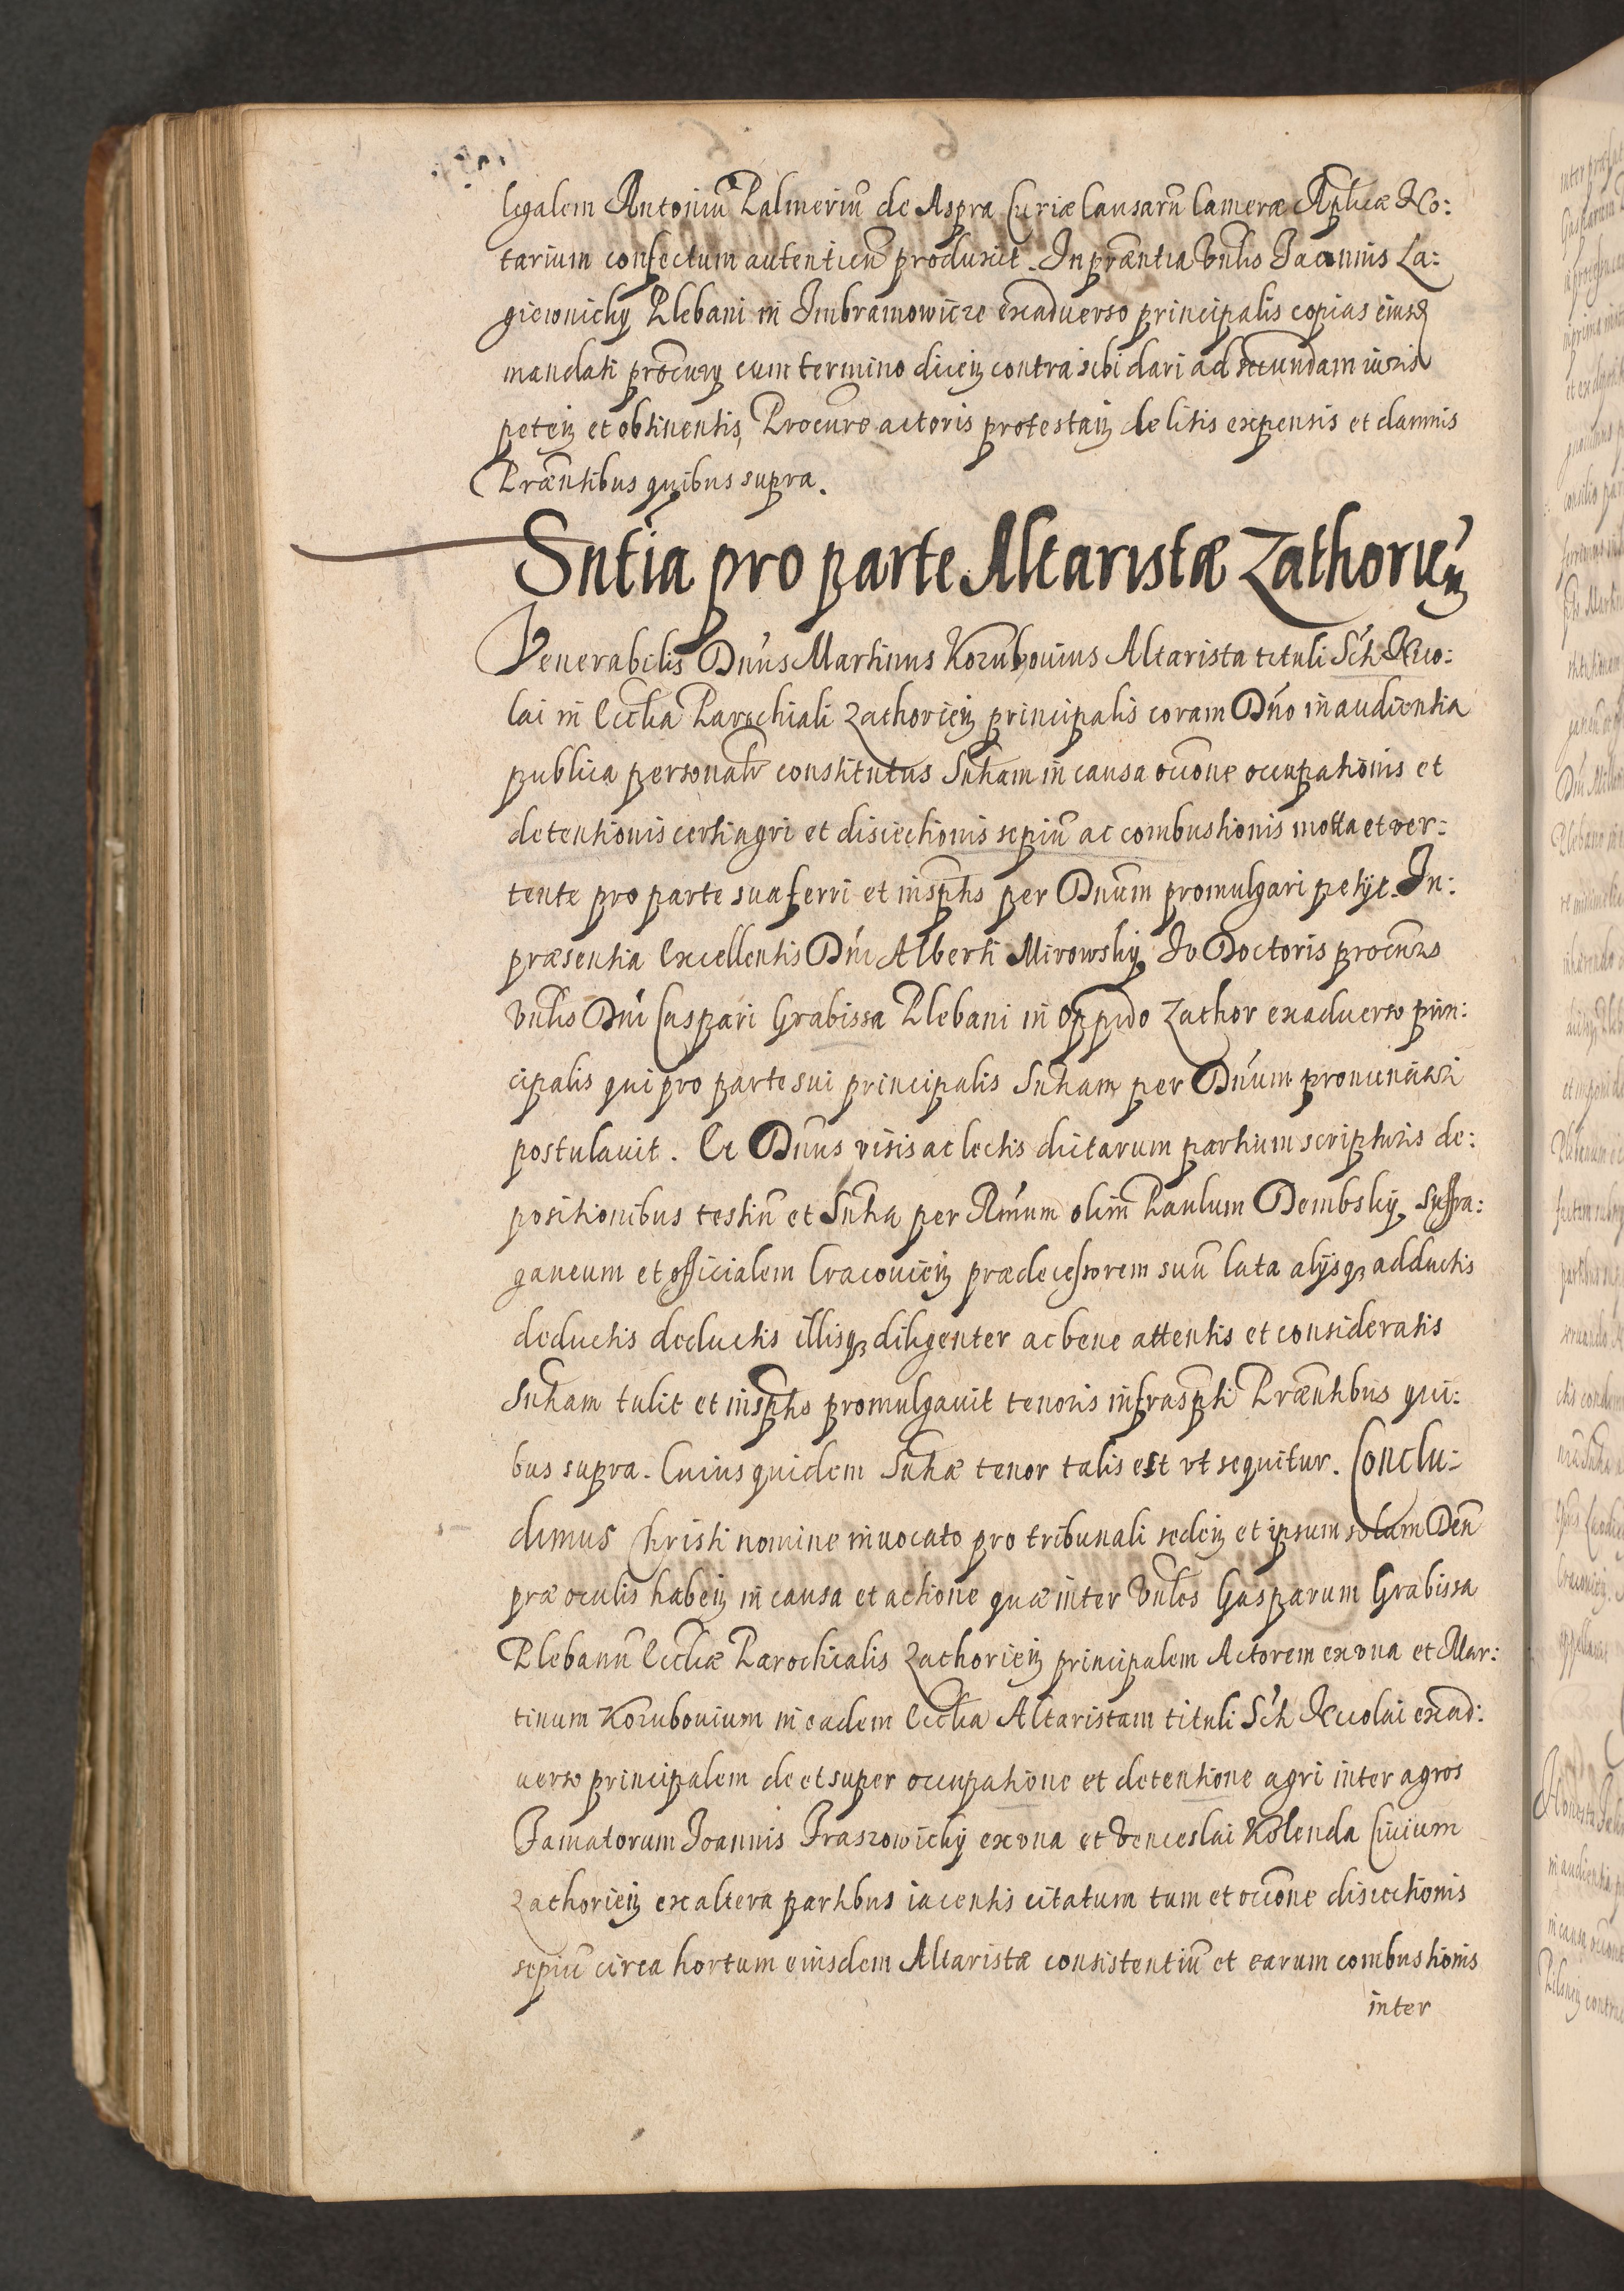 legalem Antoniū Palmeriū de Aspra Curiæ Causarū Cameræ Aplicæ No:
tarium confectum autenticū produxit. In præntia Vnlis Joannis La:
giewnicky Plebani in Imbramowicze exaduerso principalis copias eiusd
mandati procury cum termino dicen contra sibi dari ad secundam iuris
peten et obtinentis, Procure actoris protestan de litis expensis et damnis
Præntibus quibus supra.
Sntia pro parte Altaristæ Zathorien
Venerabilis Dnus Martinus Kozubouius Altarista tituli Scti Nico:
lai in Ecclia Parochiali Zathorien principalis coram Dno in audientia
publica personalr constitutus Sntiam in causa occone occupationis et
detentionis certi agri et disiectionis sepiū ac combustionis mota et ver:
tente pro parte sua ferri et inscptis per Dnum promulgari petijt. In:
præsentia Excellentis Dni Alberti Mirowsky Iv Doctoris procuris
Vnlis Dni Caspari Grabissa Plebani in Oppido Zathor exaduerso prin:
cipalis qui pro parte sui principalis Sntiam per Dnum pronunciari
postulauit. Et Dnus visis ac lectis dictarum partium scripturis de:
positionibus testiū et Sntia per Rmum olim Paulum Dembsky, Suffra:
ganeum et officialem Cracouien prædecessorem suū lata alijsq adductis
deductis deductis illisq diligenter ac bene attentis et consideratis
Sntiam tulit et inscptis promulgauit tenoris infrascpti Præntibus qui:
bus supra. Cuius quidem Sntiæ tenor talis est vt sequitur. Conclu:
dimus Christi nomine inuocato pro tribunali seden et ipsum solum Deū
præ oculis haben in causa et actione quæ inter Vnles Gasparum Grabissa
Plebanū Eccliæ Parochialis Zathorien principalem Actorem ex vna et Mar:
tinum Kozubouium in eadem Ecclia Altaristam tituli Scti Nicolai exad:
uerso principalem de et super occupatione et detentione agri inter agros
Famatorum Joannis Fraszowicky ex vna et Venceslai Kolenda Ciuium
Zathorien ex altera partibus iacentis citatum tum et occone disiectionis
sepiū circa hortum eiusdem Altaristæ consistentiū et earum combustionis
inter